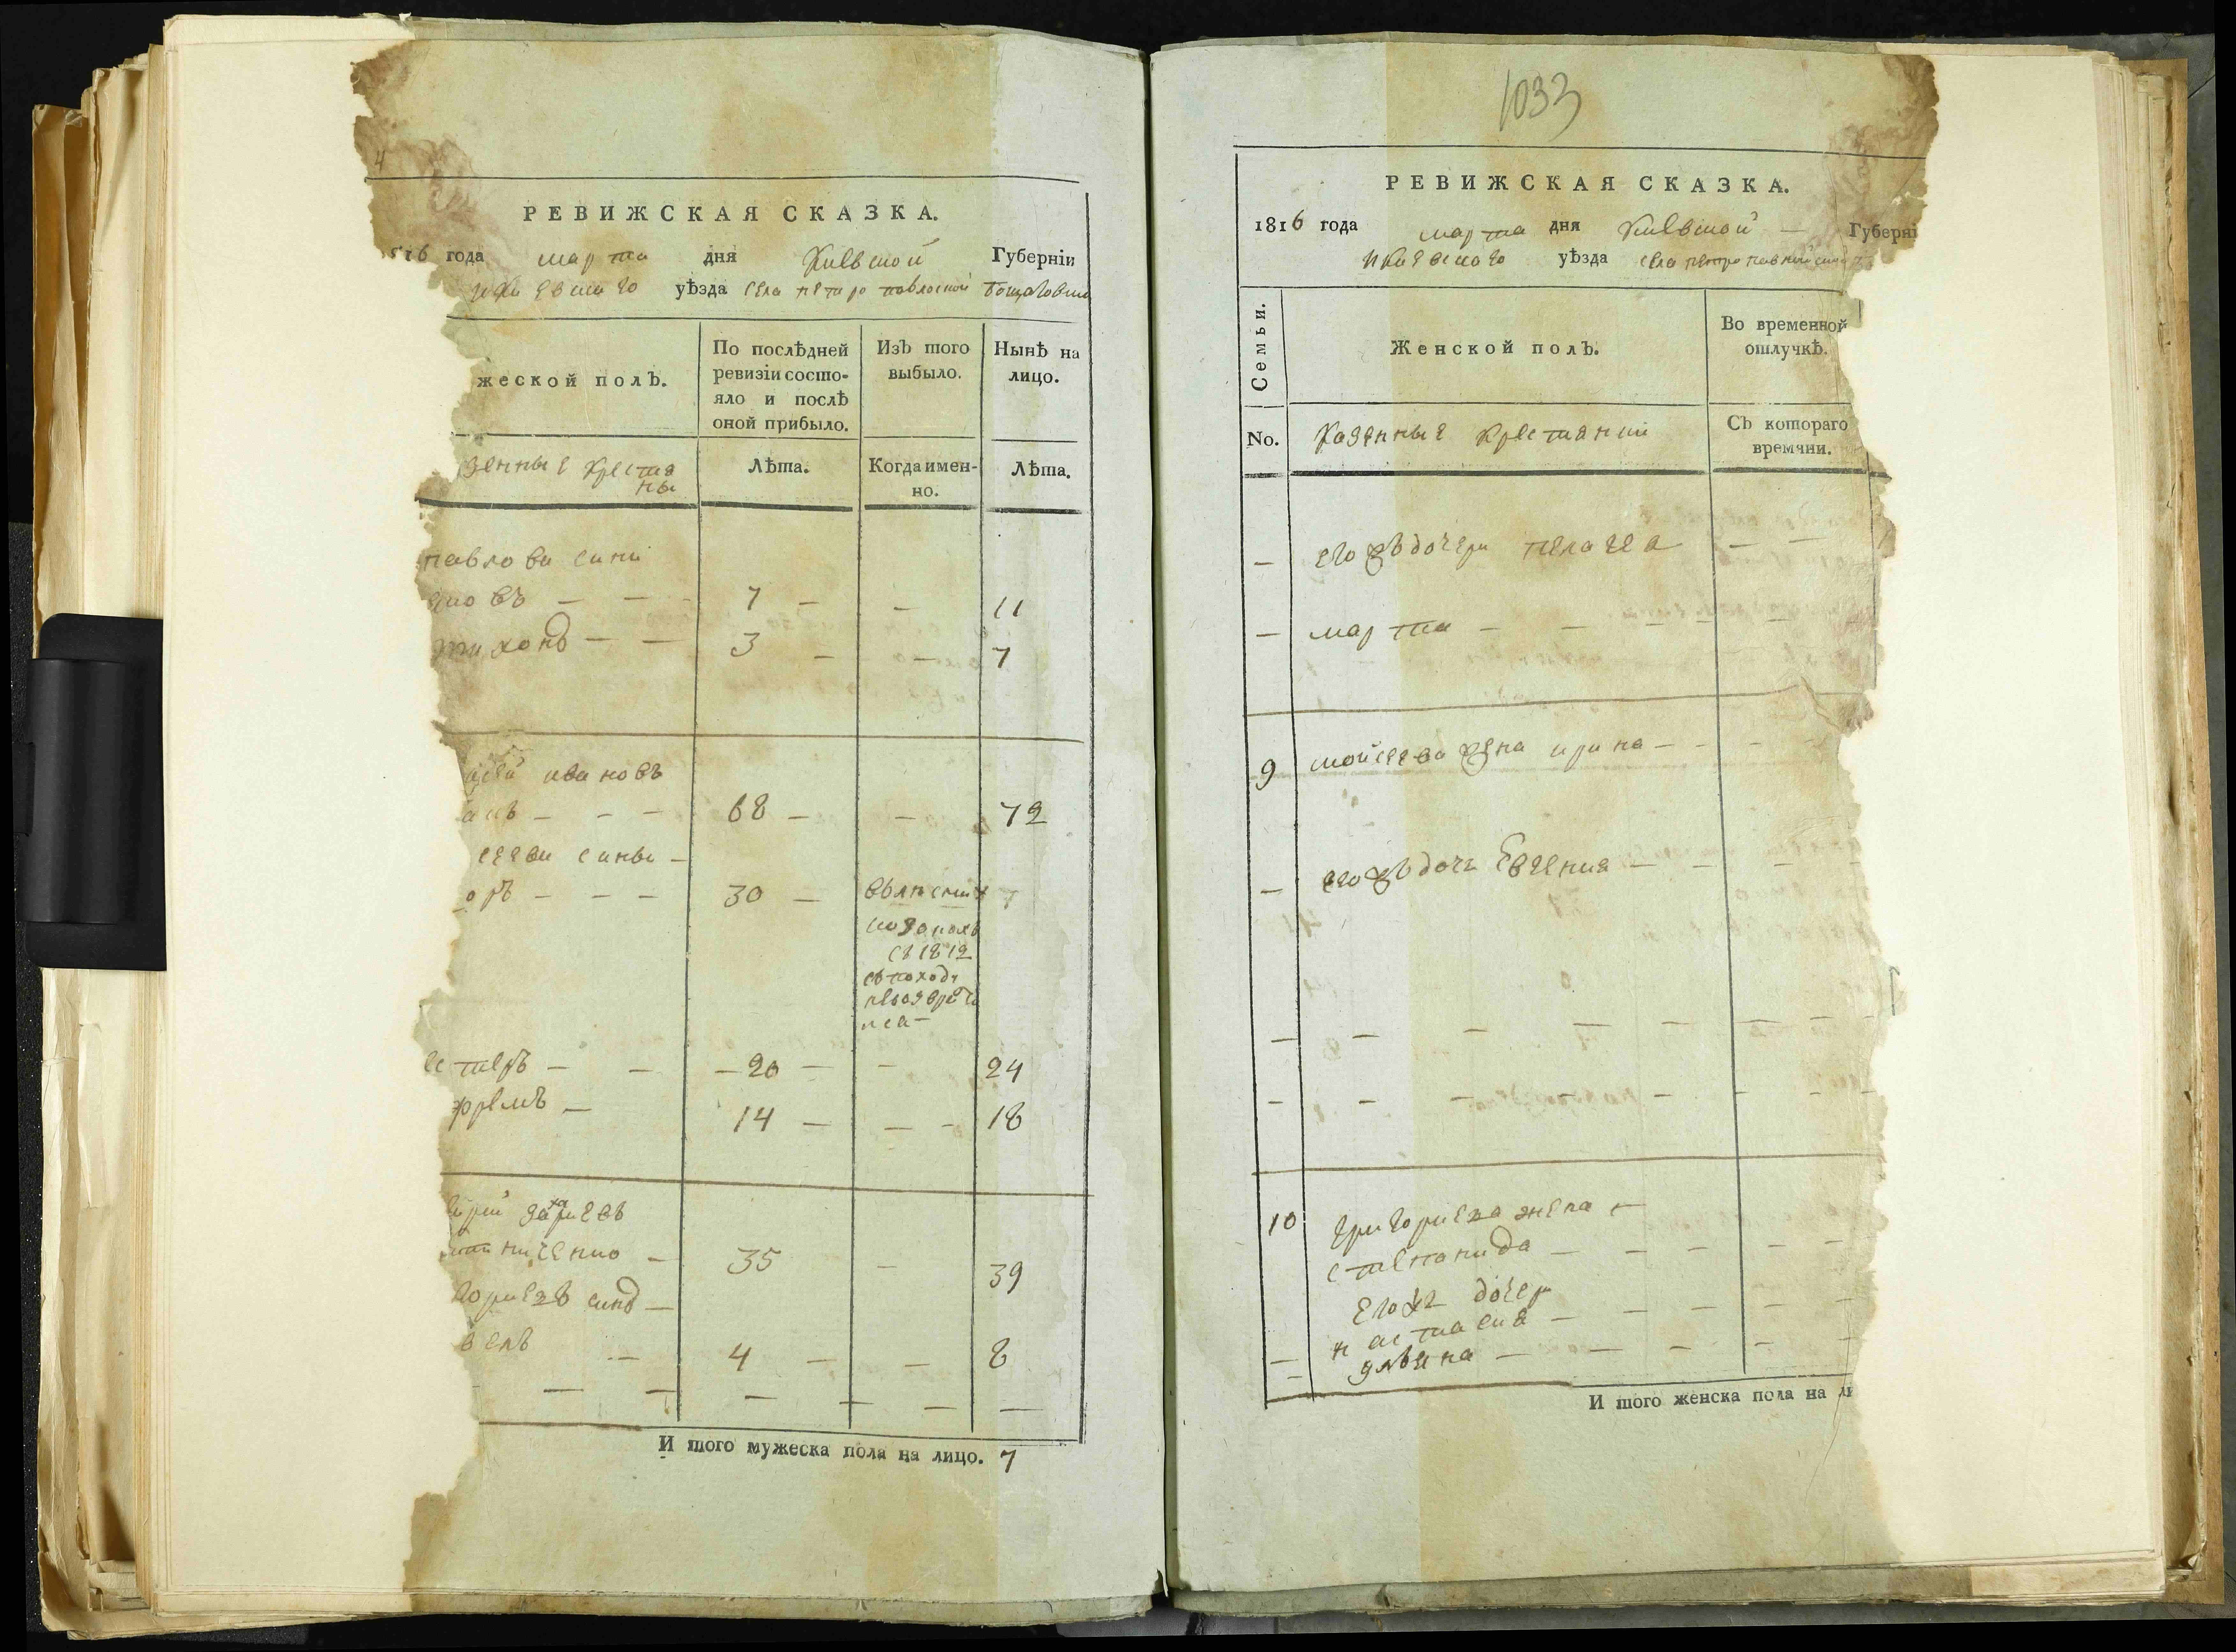 4
РЕВИЖСКАЯ СКАЗКА.
816 года марта дня Киевской Губерніи
и Киевскаго уѣзда села петро павлоской борщаговки
жеской полъ.
По послѣдней
ревизіи состо-
яло и послѣ
оной прибыло.
Изъ того
выбыло.
Нынѣ на
лицо.
зенные крестя
ны
Лѣта.
Когда имен-
но.
Лѣта.
павлова сини
7 — — 11
тихонъ — — 3 — — 7
ивановъ
68 — — 72
сеева сины —
оръ — — — 30 —
съ 1812
съ походу
невозврати
лся —
естеръ — — — 20 — — 24
фремъ — 14 — — — 18
захариевъ
35 — 39
гориевъ синъ —
велъ — 4 — — 8
И того мужеска пола на лицо. 7
1033
РЕВИЖСКАЯ СКАЗКА.
1816 года марта дня Киевской — Губерні
и Киевскаго уѣзда села петро павлоской
Семьи.
Женской полъ.
Во временной
отлучкѣ.
No.
Казенные крестянки
Съ котораго
времяни.
— его жъ дочери пелагея — —
— марта — — — — —
9 мойсеева жена ирина — — —
— его жъ дочь Евгения — — —
— — — — — — — —
— — — — — — — —
10 григориева жена —
степанида — — — — —
его жъ дочери
— настасия — — — — —
— — — — — —
И того женска пола на ли